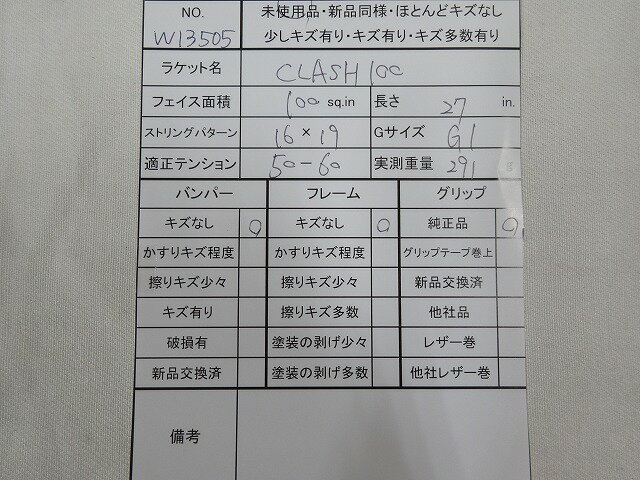 NO. 未使用品・新品同様・ほとんどキズなし
W13505 少しキズ有り・キズ有り・キズ多数有り
ラケット名 CLASH 100
フェイス面積 100 sq.in 長さ 27 in.
ストリングパターン 16 × 19 Gサイズ G1
適正テンション 50-60 実測重量 291 g
バンパー フレーム グリップ
キズなし ○ キズなし ○ 純正品 ○
かすりキズ程度 かすりキズ程度 グリップテープ巻上
擦りキズ少々 擦りキズ少々 新品交換済
キズ有り 擦りキズ多数 他社品
破損有 塗装の剥げ少々 レザー巻
新品交換済 塗装の剥げ多数 他社レザー巻
備考